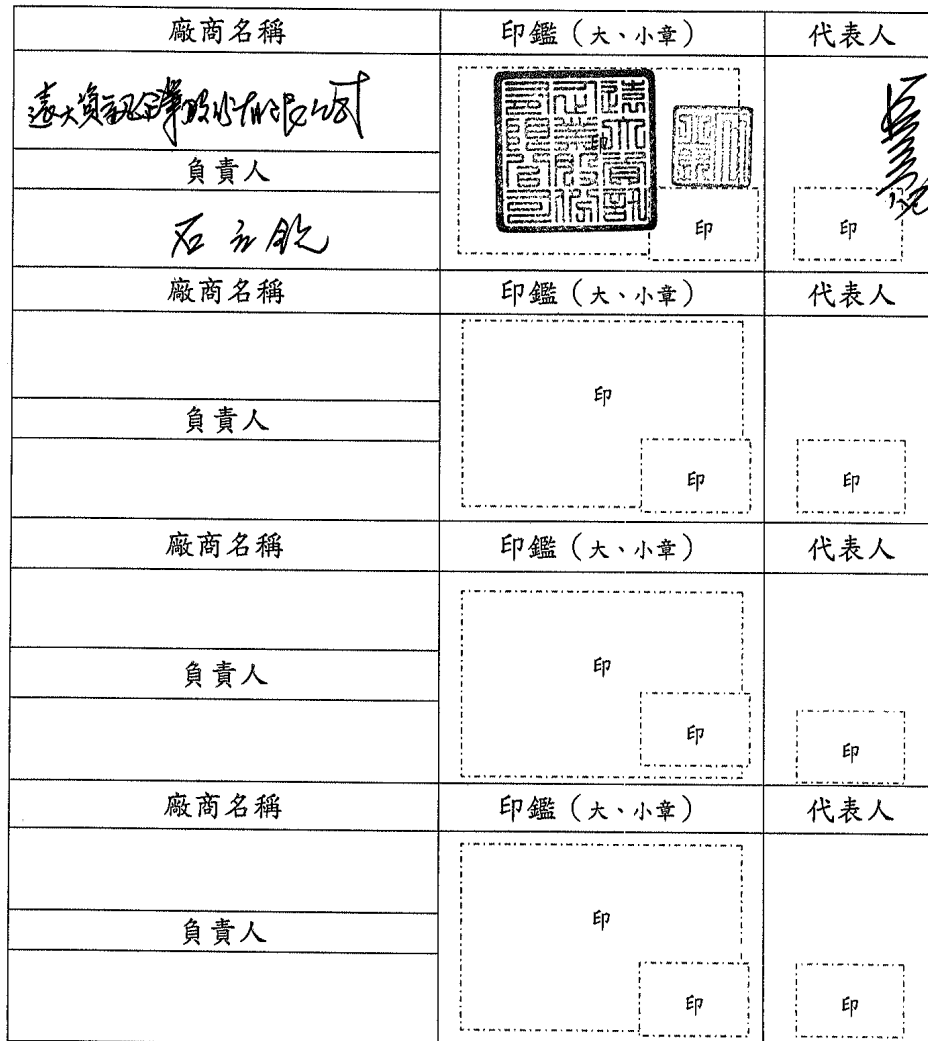 廠商名稱 印鑑（大、小章） 代表人
遠大資訊企業股份有限公司
負責人
石
印 印
廠商名稱 印鑑（大、小章） 代表人
印
負責人
印 印
廠商名稱 印鑑（大、小章） 代表人
印
負責人
印 印
廠商名稱 印鑑（大、小章） 代表人
印
負責人
印 印